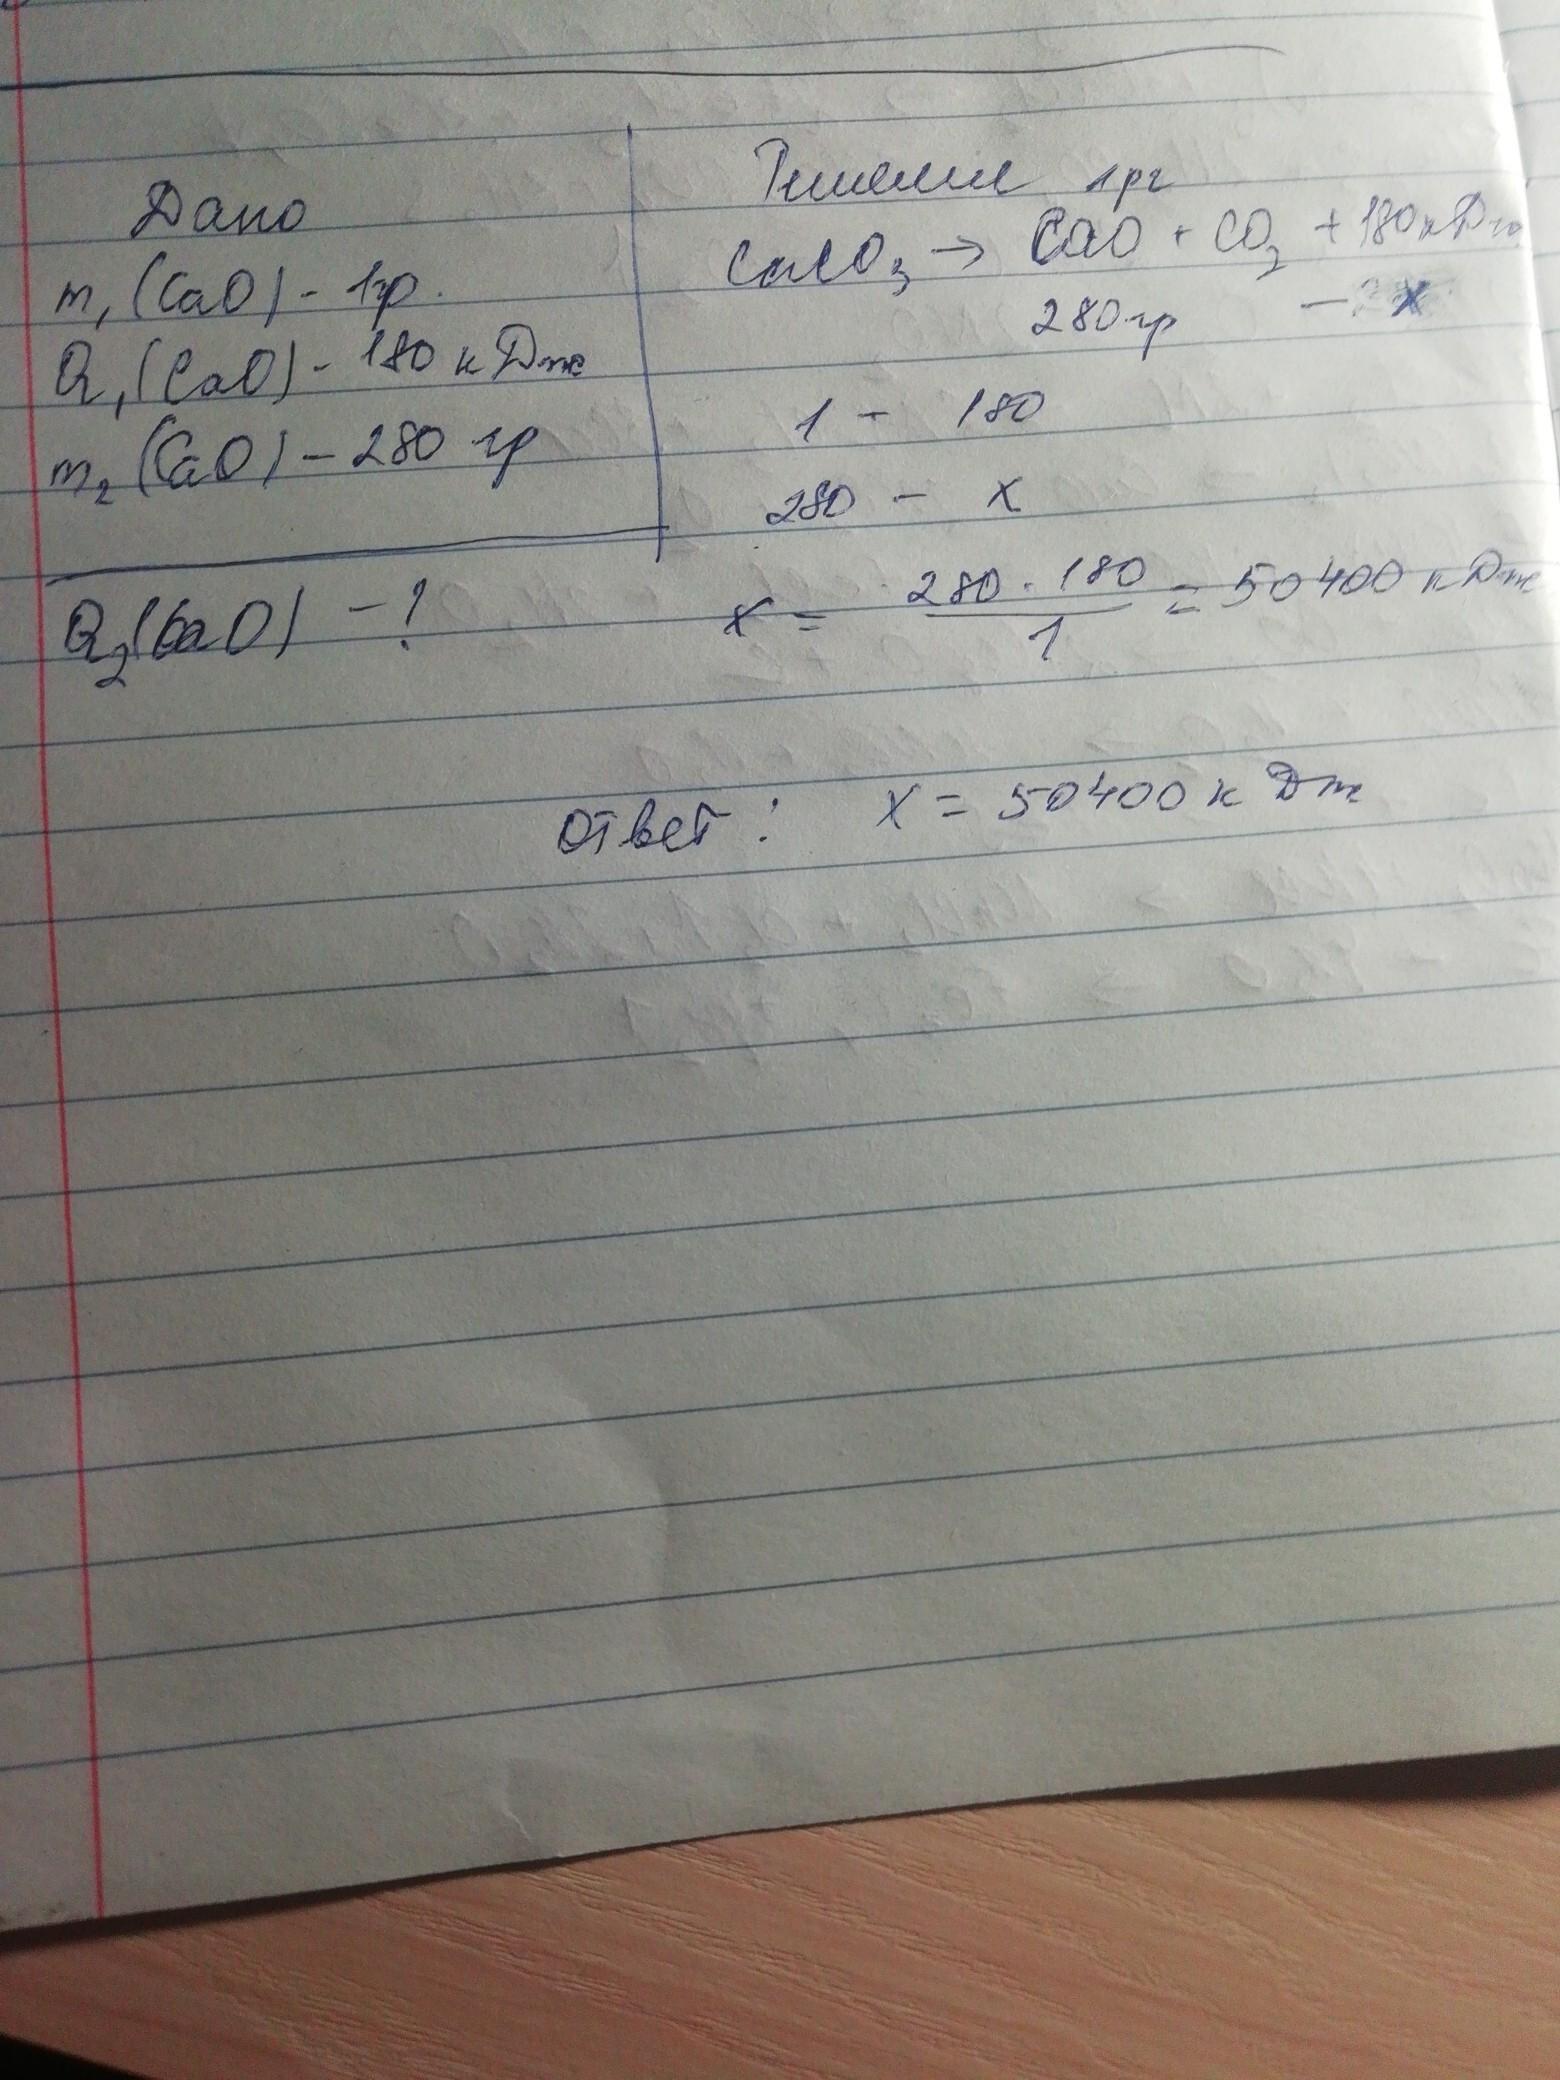 Дано
m₁(CaO) - 1гр.
Q₁(CaO) - 180 кДж
m₂(CaO) - 280 гр
Q₂(CaO) - ?
Решение 1рг
CaCO₃ → CaO + CO₂ + 180кДж
280гр - x
1 - 180
280 - x
x = 280 · 180 / 1 = 50400 кДж
Ответ: x = 50400 кДж